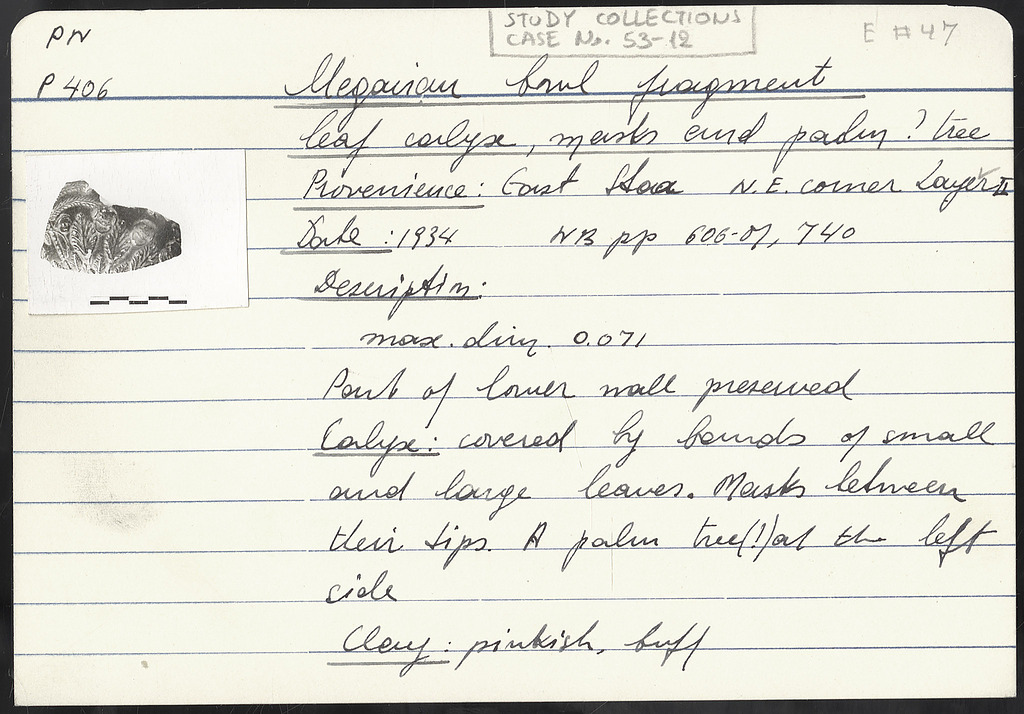 PN
STUDY COLLECTIONS
CASE No. 53-12
E #47
P 406
Megarian bowl fragment
leaf calyx, masks and palm? tree
Provenience: East Stoa N.E. corner Layer II
Date: 1934 NB pp 606-07, 740
Description:
max. dim. 0.071
Part of lower wall preserved
Calyx: covered by bands of small
and large leaves. Masks between
their tips. A palm tree(!) at the left
side
Clay: pinkish, buff